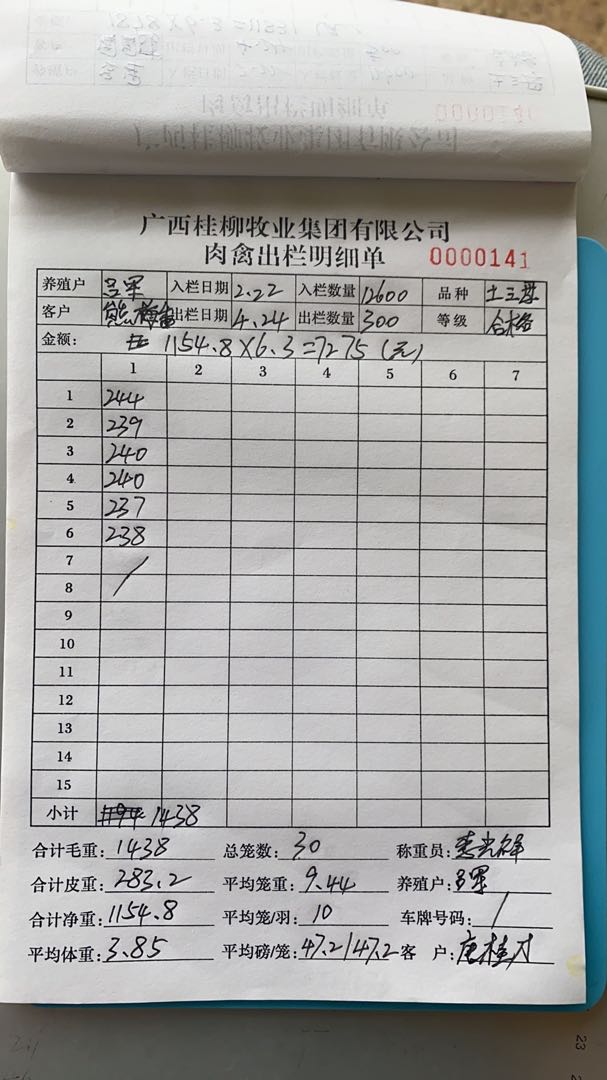 广西桂柳牧业集团有限公司
肉禽出栏明细单 0000141
养殖户 吕军 入栏日期 2.22 入栏数量 12600 品种
客户 出栏日期 4.24 出栏数量 300 等级 合格
金额: 1154.8×6.3=7275（元）
1 2 3 4 5 6 7
1 244
2 239
3 240
4 240
5 237
6 238
7
8 /
9
10
11
12
13
14
15
小计 1438
合计毛重: 1438 总笼数: 30 称重员:
合计皮重: 283.2 平均笼重: 9.44 养殖户: 吕军
合计净重: 1154.8 平均笼/羽: 10 车牌号码: /
平均体重: 3.85 平均磅/笼: 47.2/47.2 客 户:
23